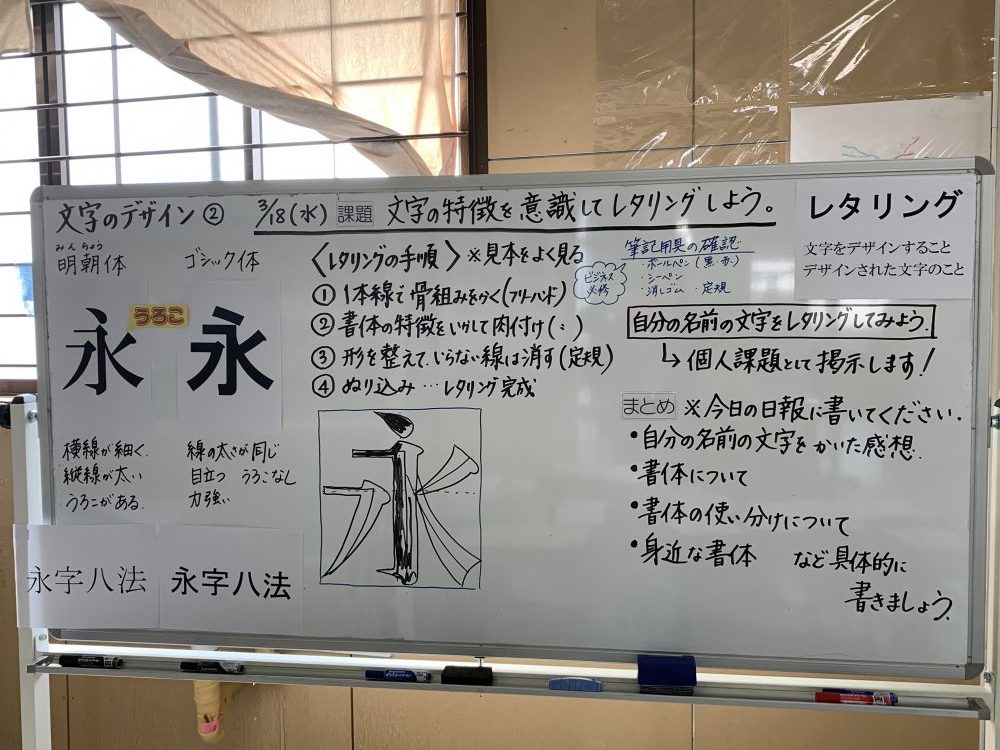 文字のデザイン②
3/18(水) 課題 文字の特徴を意識してレタリングしよう。
みんちょう
明朝体
ゴシック体
永
うろこ
永
横線が細く
縦線が太い
うろこがある
線の太さが同じ
目立つ うろこなし
力強い
永字八法
永字八法
〈レタリングの手順〉※見本をよく見る
① 1本線で骨組みをかく(フリーハンド)
② 書体の特徴をいかして肉付け(〃)
③ 形を整えて、いらない線は消す(定規)
④ ぬり込み…レタリング完成
筆記用具の確認
ビジネス
必修
・ボールペン(黒・赤)
・シーペン
・消しゴム ・定規
レタリング
文字をデザインすること
デザインされた文字のこと
自分の名前の文字をレタリングしてみよう。
↳個人課題として掲示します!
まとめ ※今日の日報に書いてください。
・自分の名前の文字をかいた感想
・書体について
・書体の使い分けについて
・身近な書体 など具体的に
書きましょう。